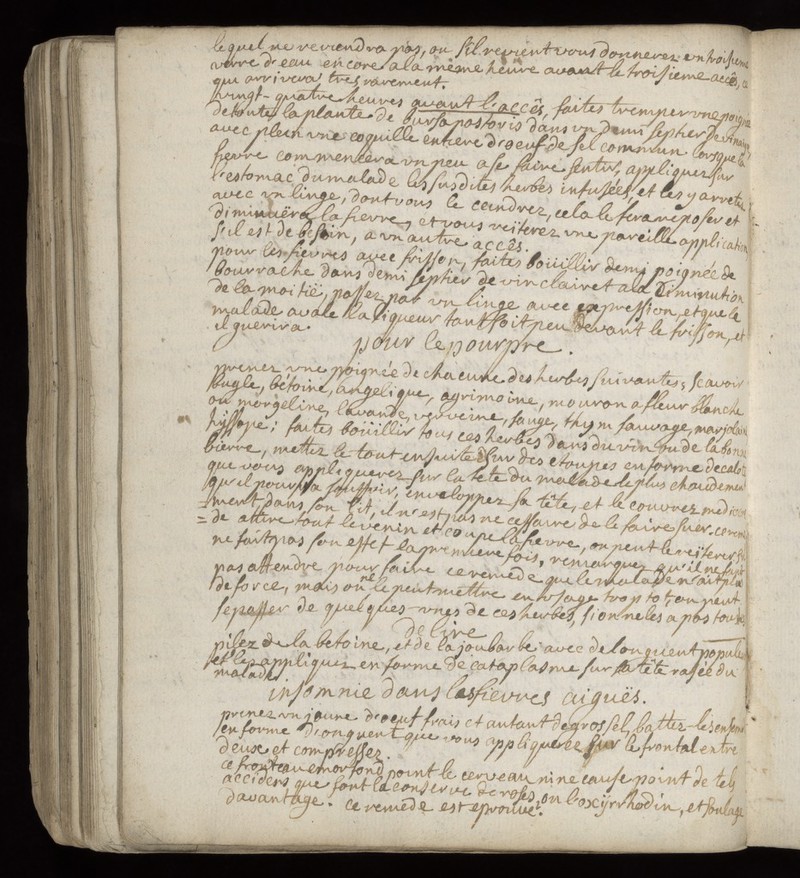 lequel ne reviendra pas, ou s'il revient vous donnerez un troisieme
verre d'eau encore a la même heüre avant le troisieme accès, ce
qui arrivera très rarement.
vingt-quatre heures avant l'accès, faites tremper une poignée
de toute la plante de bursa pastoris dans un demi septier de vinaigre
avec plein une coquille entiere d'oeuf de sel commun lorsque la
fievre commencera un peu a se faire sentir, appliquez sur
l'estomac du malade les susdites herbes infusées, et les y arretez
avec un linge, dont vous le ceindrez, cela le fera reposer et
diminuëra la fievre, et vous reiterez une pareille application
s'il est de besoin, a un autre accès.
pour les fievres avec frisson, faites boüillir demi poignée de
bourrache dans demi septier de vin clairet a la diminution
de la moitié, passez par un linge avec expression, et que le
malade avale la liqueur tant soit peu devant le frisson, et
il guerira.
pour le pourpre.
prenez une poignée de chacune des herbes suivantes; scavoir
bugle, bétoine, angelique, agrimoine, mouron a fleur blanche
ou morgeline, lavande, verveine, sauge, thym sauvage, marjolaine
hyssope; faites boüillir tous ces herbes dans du vin ou de la bonne
bierre, mettez le tout ensuite sur des etoupes en forme de calotte
que vous appliquerez sur la tete du malade le plus chaudement
qu'il pourra souffrir, enveloppez sa tête, et le couvrez mediocre
ment dans son lit, il n'est pas necessaire de le faire suer. ce remede
attire tout le venin et coupe la fievre, on peut le reiterer s'il
ne fait pas son effet la premiere fois, remarquez qu'il ne faut
pas attendre pour faire ce remede que le malade n'ait plus
de force, mais on ne le peut mettre en usage trop tot, on peut
se passer de quelques-unes de ces herbes, si on ne les a pas toutes
delire
pilez de la betoine, et de la joubarbe avec de l'onguent populeum
et les appliquez en forme de cataplasme sur la tête rasée du
malade.
insomnie dans les fievres aiguës.
prenez un jaune d'oeuf frais et autant de gros sel, battez-les ensemble
en forme d'onguent que vous appliquerez sur le frontal entre
deux et compressez.
ce fronteau ne morfond point le cerveau ni ne cause point de tels
accidens que font la conserve de roses, ou l'oxyrrhodin, et soulage
davantage. ce remede est eprouvé.